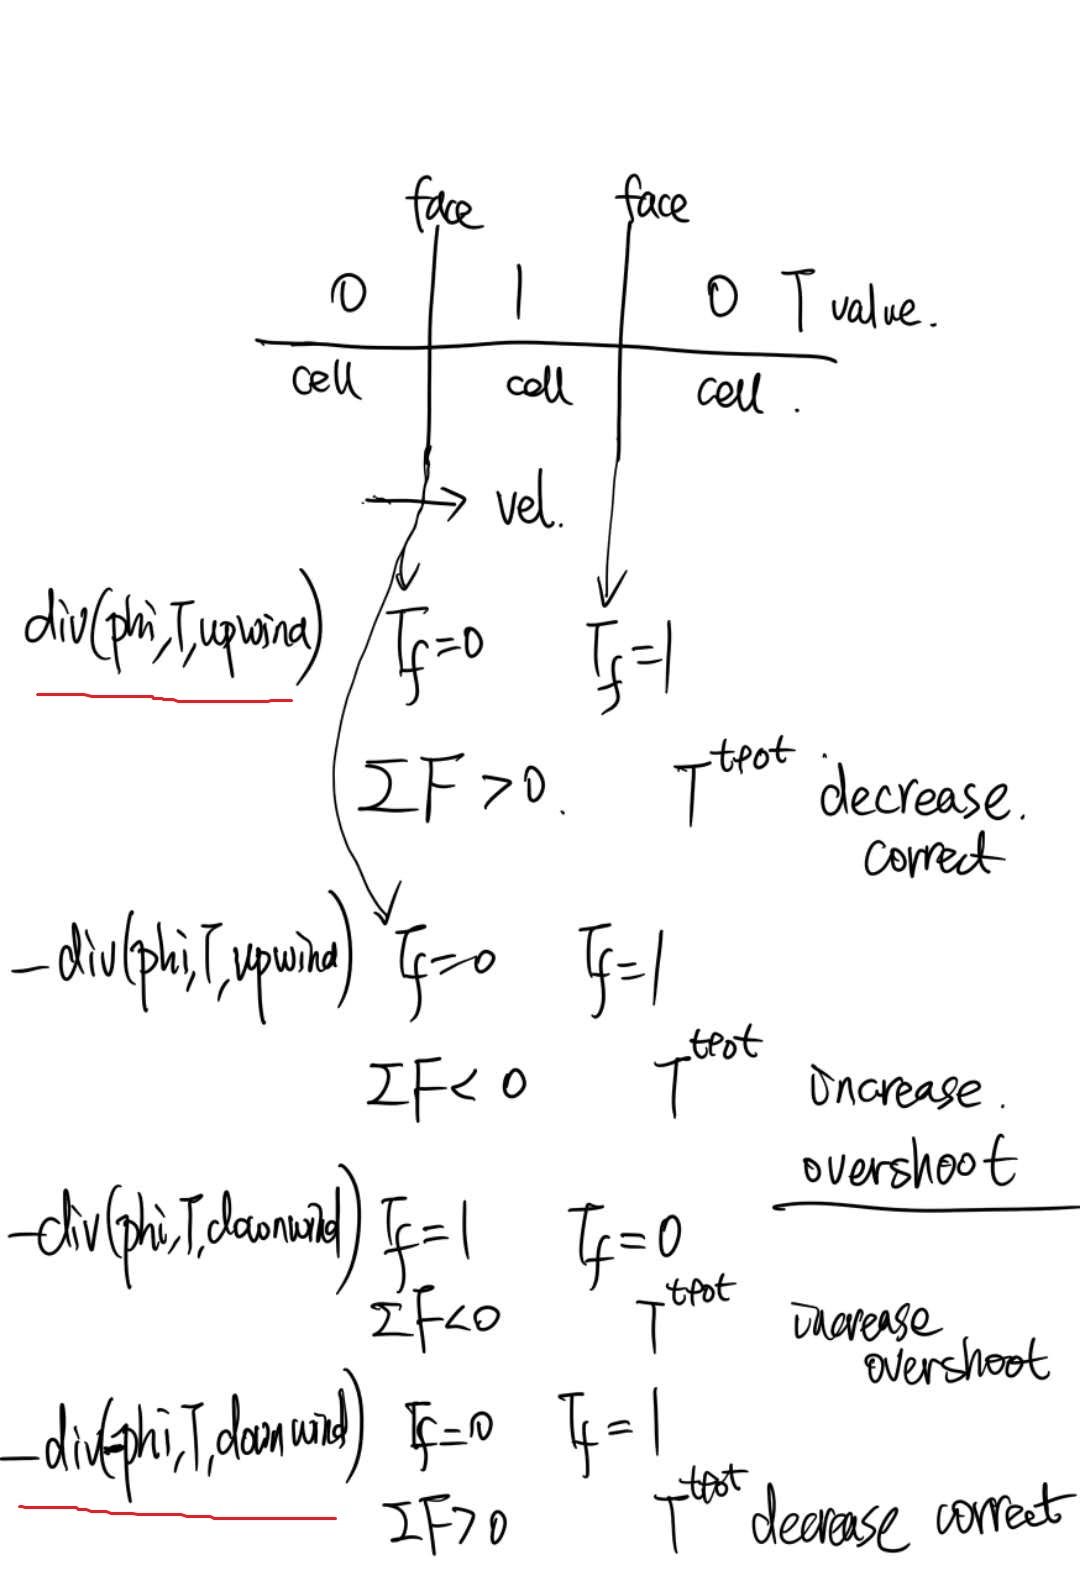 face face
0 1 0 T value.
cell cell cell.
vel.
div(phi,T,upwind) Tf=0 Tf=1
ΣF>0. T^t+δt decrease.
correct
-div(phi,T,upwind) Tf=0 Tf=1
ΣF<0 T^t+δt increase.
overshoot
-div(phi,T,downwind) Tf=1 Tf=0
ΣF<0 T^t+δt increase
overshoot
-div(-phi,T,downwind) Tf=0 Tf=1
ΣF>0 T^t+δt decrease correct